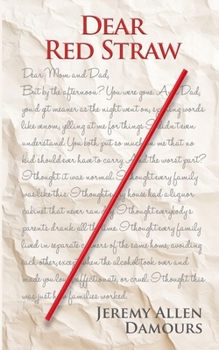 DEAR
RED STRAW
Dear, Mom and Dad,
But by the afternoon? You were gone. And Dad,
you'd get meaner as the night went on, words
like venom, yelling at me for things I didn't even
understand. You both put so much on me that no
kid should ever have to carry. And the worst part?
I thought it was normal. I thought every family
was like this. I thought every house had a liquor
cabinet that never ran dry. I thought everybody's
parents drank all the time. I thought every family
lived in separate corners of the same home, avoiding
each other, except when the alcohol took over and
made you loud, affectionate, or cruel. I thought this
was just how families worked.
JEREMY ALLEN
DAMOURS